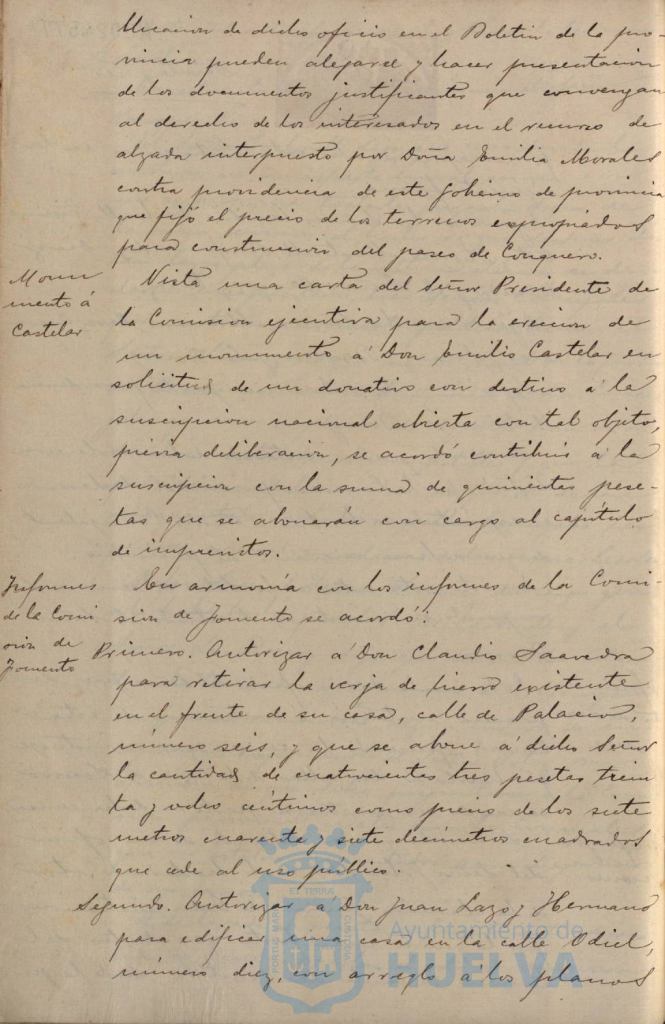 blicacion de dicho oficio en el Boletin de la pro-
vincia pueden alegarse y hacer presentacion
de los documentos justificantes que convengan
al derecho de los interesados en el recurso de
alzada interpuesto por Doña Emilia Morales
contra providencia de este Gobierno de provincia
que fijó el precio de los terrenos expropiados
para construccion del paseo de Conquero.
Monu
mento á
Castelar
Vista una carta del Señor Presidente de
la Comision ejecutiva para la ereccion de
un monumento á Don Emilio Castelar en
solicitud de un donativo con destino á la
suscripcion nacional abierta con tal objeto,
previa deliberacion, se acordó contribuir á la
suscripcion con la suma de quinientas pese-
tas que se abonarán con cargo al capítulo
de imprevistos.
Informes
de la Comi
sion de
Fomento
En armonía con los informes de la Comi-
sion de Fomento se acordó:
Primero. Autorizar á Don Claudio Saavedra
para retirar la verja de hierro existente
en el frente de su casa, calle de Palacio,
número seis, y que se abone á dicho Señor
la cantidad de cuatrocientas tres pesetas trein-
ta y ocho céntimos como precio de los siete
metros cuarenta y siete decímetros cuadrados
que cede al uso público.
Segundo. Autorizar á Don Juan Lazo y Hermano
para edificar una casa en la calle Odiel,
número diez, con arreglo á los planos
Ayuntamiento de
HUELVA